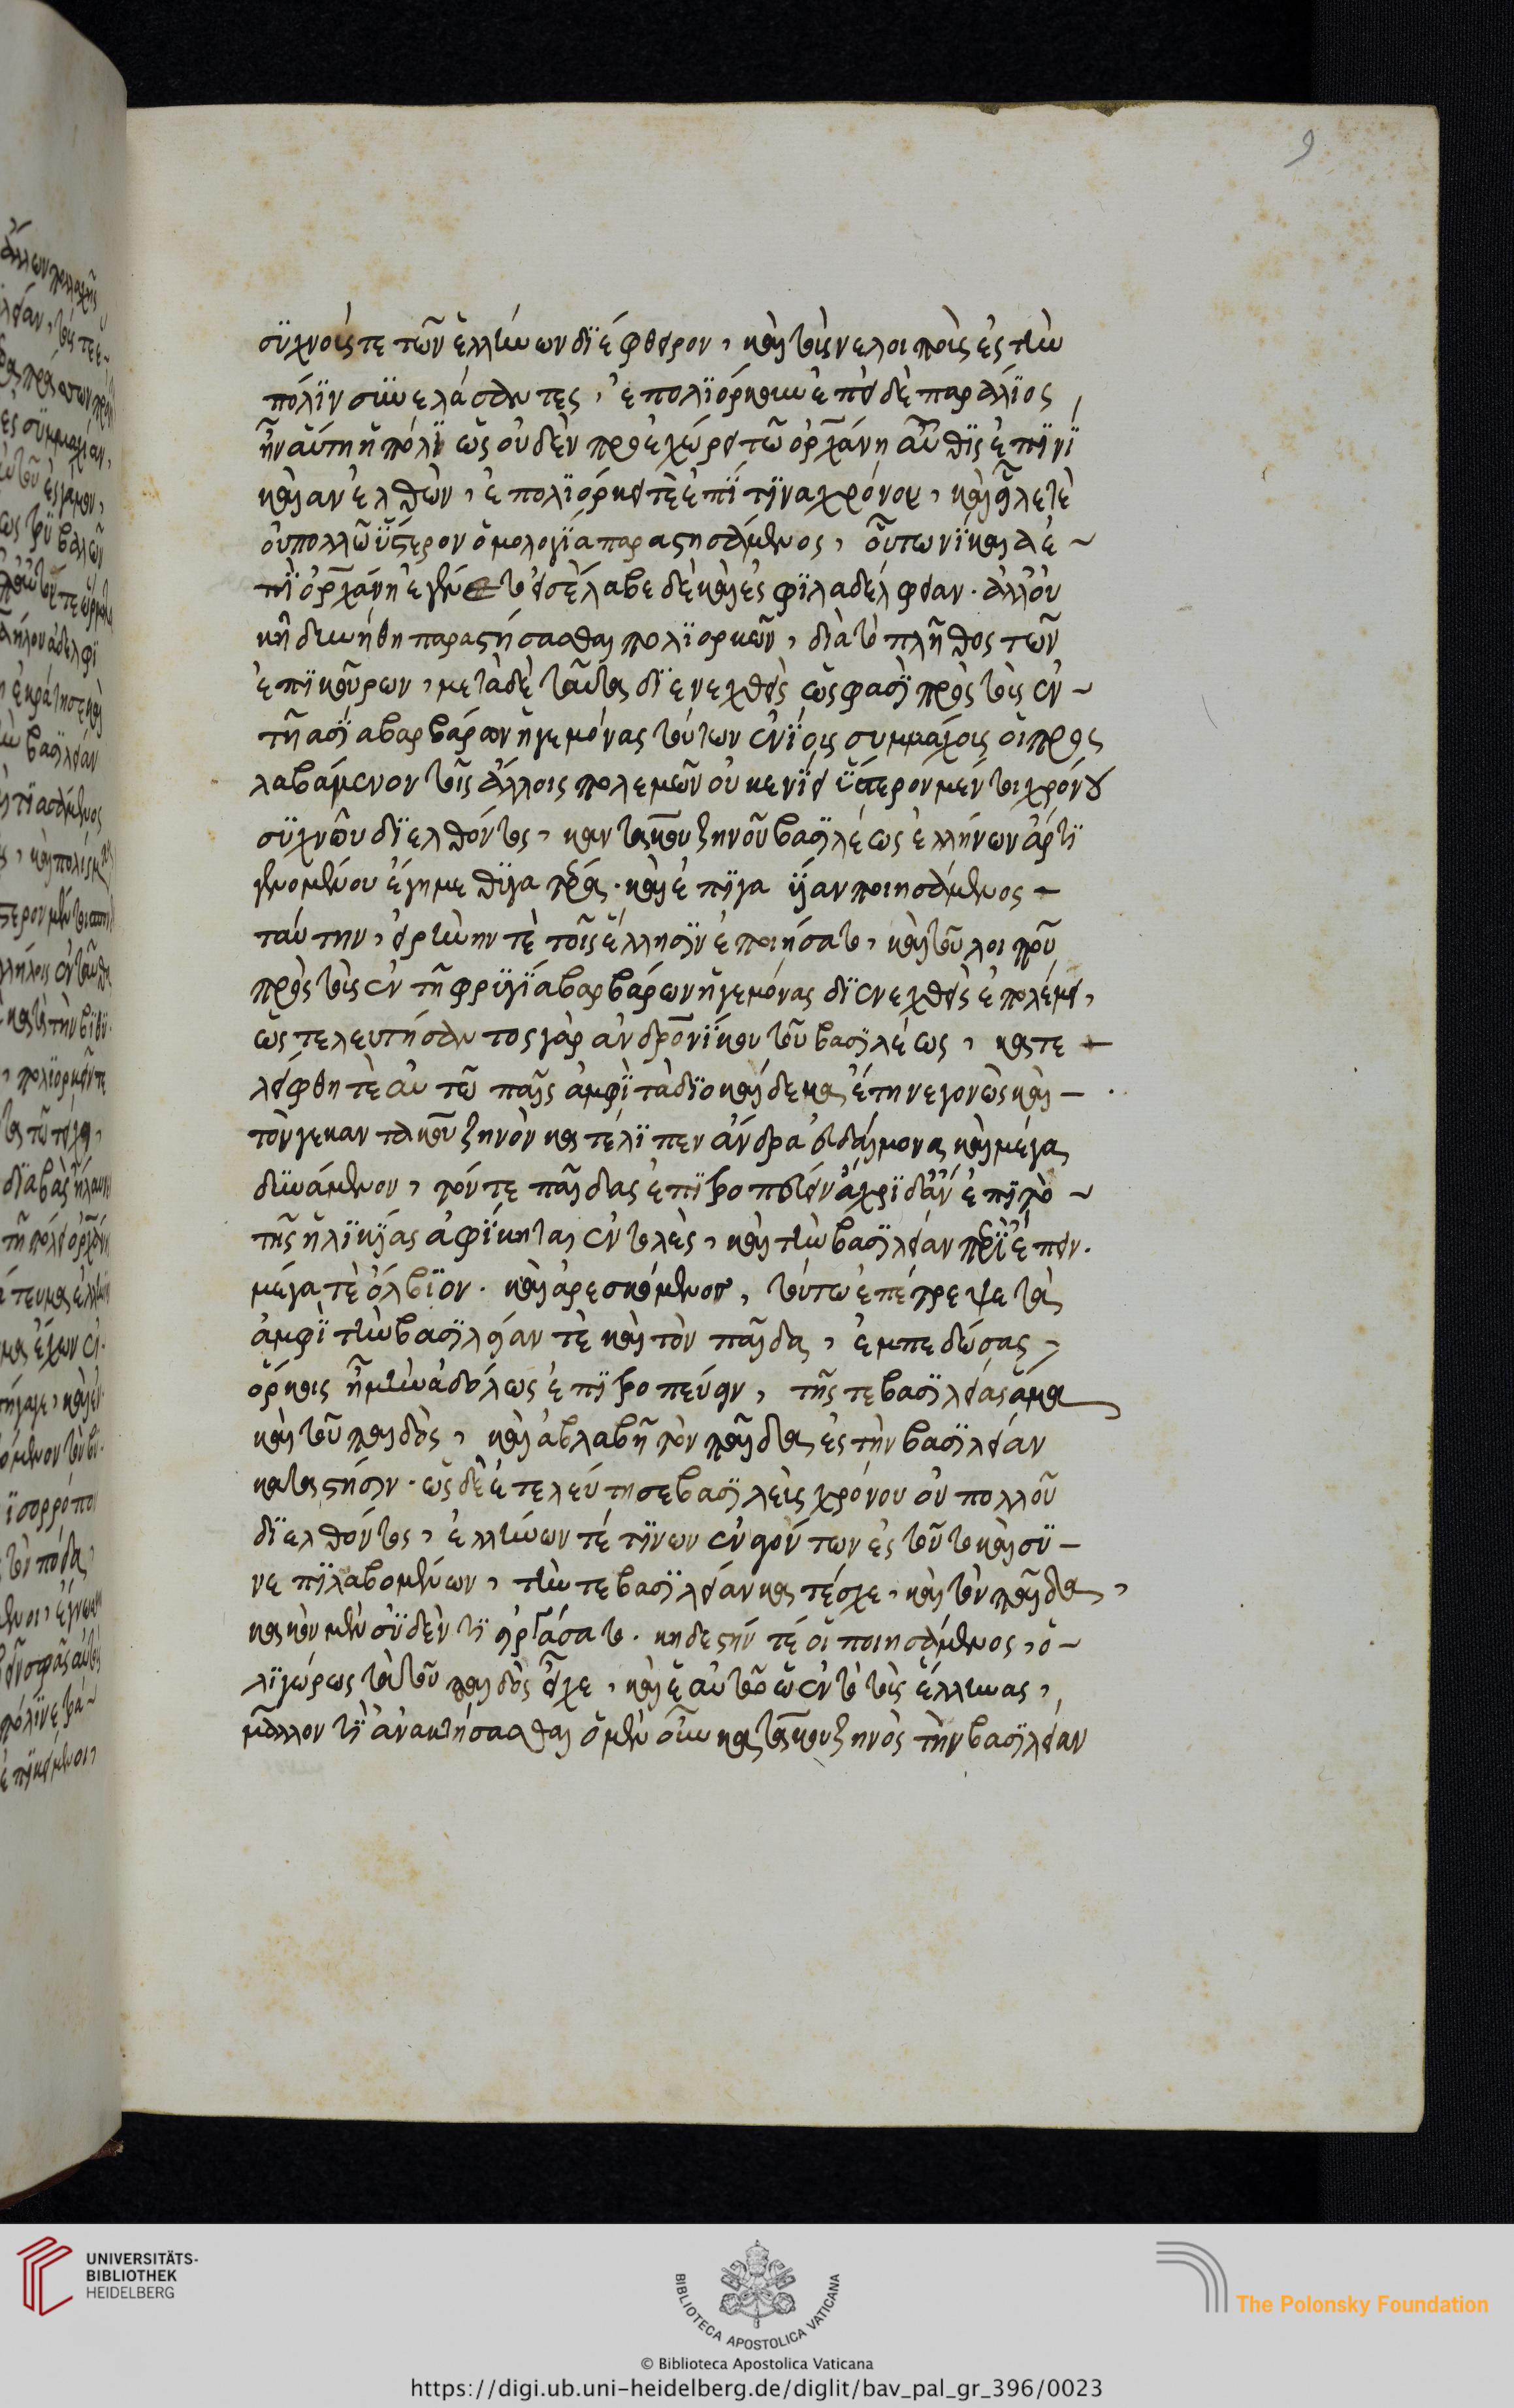 9
συχνούς τε τῶν ἑλλήνων διέφθειρον, καὶ τοὺς λοιποὺς ἐς τὴν
πόλιν συνελάσαντες, ἐπολιόρκουν ἐπεὶ δὲ παράλιος
ἦν αὕτη ἡ πόλις ὡς οὐδὲν προεχώρει τῶ ὀρχάνη αὖθις ἐπὶ νί
καιαν ἐλθὼν, ἐπολιόρκει τὲ ἐπί τινα χρόνον, καὶ εἷλε τὲ
οὐ πολλῶ ὕστερον ὁμολογία παραστησάμενος, οὕτω νίκαια ἐ
πὶ ὀρχάνη ἐγένετο εἷς ἔλαβε δὲ καὶ ἐς φιλαδέλφειαν. ἀλλ' οὐ
κ ἠδυνήθη παραστήσασθαι πολιορκῶν, διὰ τὸ πλῆθος τῶν
ἐπικούρων, μετὰ δὲ ταῦτα διενεχθεὶς ὥς φασι πρὸς τοὺς ἐν
τῆ ἀσία βαρβάρων ἡγεμόνας τούτων ἐνίοις συμμάχοις οἱ προς
λαβάμενον τοῖς ἄλλοις πολεμῶν οὐκ ἐνίει ὕστερον μέν τοι χρόνου
συχνοῦ διελθόντος, καντακουζηνοῦ βασιλέως ἑλλήνων ἄρτι
γενομένου ἔγημε θυγατέρα. καὶ ἐπιγαμίαν ποιησάμενος
ταύτην, εἰρήνην τὲ τοῖς ἕλλησιν ἐποιήσατο, καὶ τοῦ λοιποῦ
πρὸς τοὺς ἐν τῆ φρυγία βαρβάρων ἡγεμόνας διενεχθεὶς ἐπολέμει,
ὡς τελευτήσαντος γὰρ ἀνδρονίκου τοῦ βασιλέως, κατε
λείφθη τὲ αὐτῶ παῖς ἀμφὶ τὰ δύο καὶ δέκα ἔτη γεγονὼς καὶ
τόν γε καντακουζηνὸν κατέλιπεν ἄνδρα εὐδαίμονα καὶ μέγα
δυνάμενον, τόν τε παῖδα ἐπιτροπεύειν ἄχρι δ' ἂν ἐπὶ τὸ
τῆς ἡλικίας ἀφίκηται ἐντελὲς, καὶ τὴν βασιλείαν περιέπειν.
μέγα τὲ ὄλβιον. καὶ ἀρεσκόμενος, τούτω ἐπέτρεψε τὰ
ἀμφὶ τὴν βασιλείαν τὲ καὶ τὸν παῖδα, ἐμπεδώσας
ὅρκοις ἦ μὴν ἀδόλως ἐπιτροπεύειν, τῆς τε βασιλείας ἅμα
καὶ τοῦ παιδὸς, καὶ ἀβλαβῆ τὸν παῖδα ἐς τὴν βασιλείαν
καταστήσειν. ὡς δὲ ἐτελεύτησε βασιλεὺς χρόνου οὐ πολλοῦ
διελθόντος, ἑλλήνων τέ τινων ἐναγόντων ἐς τοῦτο καὶ συ
νεπιλαβομένων, τήν τε βασιλείαν κατέσχε, καὶ τὸν παῖδα,
κακὸν μὲν οὐδὲν τι εἰργάσατο. κηδεστήν τέ οἱ ποιησάμενος, ὀ
λιγώρως τὰ τοῦ παιδὸς εἶχε, καὶ ἑαυτοῦ ἐῶεντο τοὺς ἕλληνας,
μᾶλλον τι ἀνακτήσασθαι ὁ μὲν οὖν καντακουζηνὸς τὴν βασιλείαν
UNIVERSITÄTS-
BIBLIOTHEK
HEIDELBERG
BIBLIOTECA APOSTOLICA VATICANA
The Polonsky Foundation
© Biblioteca Apostolica Vaticana
https://digi.ub.uni-heidelberg.de/diglit/bav_pal_gr_396/0023